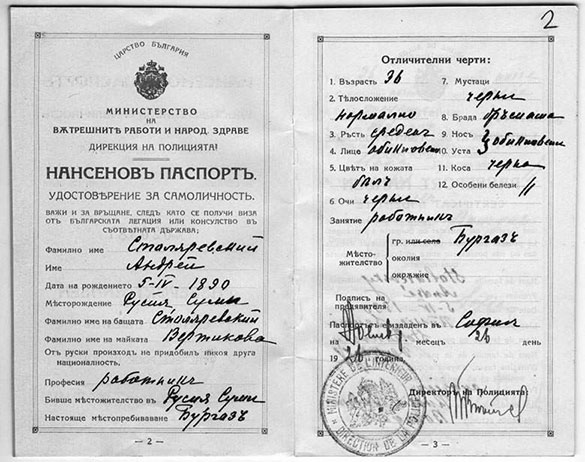 ЦАРСТВО БЪЛГАРИЯ
МИНИСТЕРСТВО
НА
ВѪТРЕШНИТѢ РАБОТИ И НАРОД. ЗДРАВЕ
ДИРЕКЦИЯ НА ПОЛИЦИЯТА!
НАНСЕНОВЪ ПАСПОРТЪ.
УДОСТОВѢРЕНИЕ ЗА САМОЛИЧНОСТЬ.
ВАЖИ И ЗА ВРЪЩАНЕ, СЛЕДЪ КАТО СЕ ПОЛУЧИ ВИЗА
ОТЪ БЪЛГАРСКАТА ЛЕГАЦИЯ ИЛИ КОНСУЛСТВО ВЪ
СЪОТВѢТНАТА ДЪРЖАВА;
Фамилно име Столяревский
Име Андрей
Дата на рождението 5-IV-1890
Мѣсторождение Русия Сумы
Фамилно име на бащата Столяревский
Фамилно име на майката Вертикова
Отъ руски произход не придобилъ никоя друга
националность.
Професия работникъ
Бивше мѣстожителство въ Русия Сумы
Настояще местопребиваване Бургазъ
— 2 —
2
Отличителни черти:
1. Възрасть 36
7. Мустаци черни
2. Тѣлосложение нормално
8. Брада бръсната
3. Ръстъ среденъ
9. Носъ
4. Лице обикновено
10. Уста обикновени
5. Цвѣтъ на кожата бялъ
11. Коса черна
12. Особени белези //
6. Очи черни
Занятие работникъ
Мѣсто-
жителство
гр. или село Бургазъ
околия
окрѫжие
Подпись на
предявителя
Паспортъ издаденъ въ София
на месецъ 26 день
1926 година.
Директоръ на Полицията:
MINISTERE DE L'INTERIEUR
DIRECTION DE LA
— 3 —